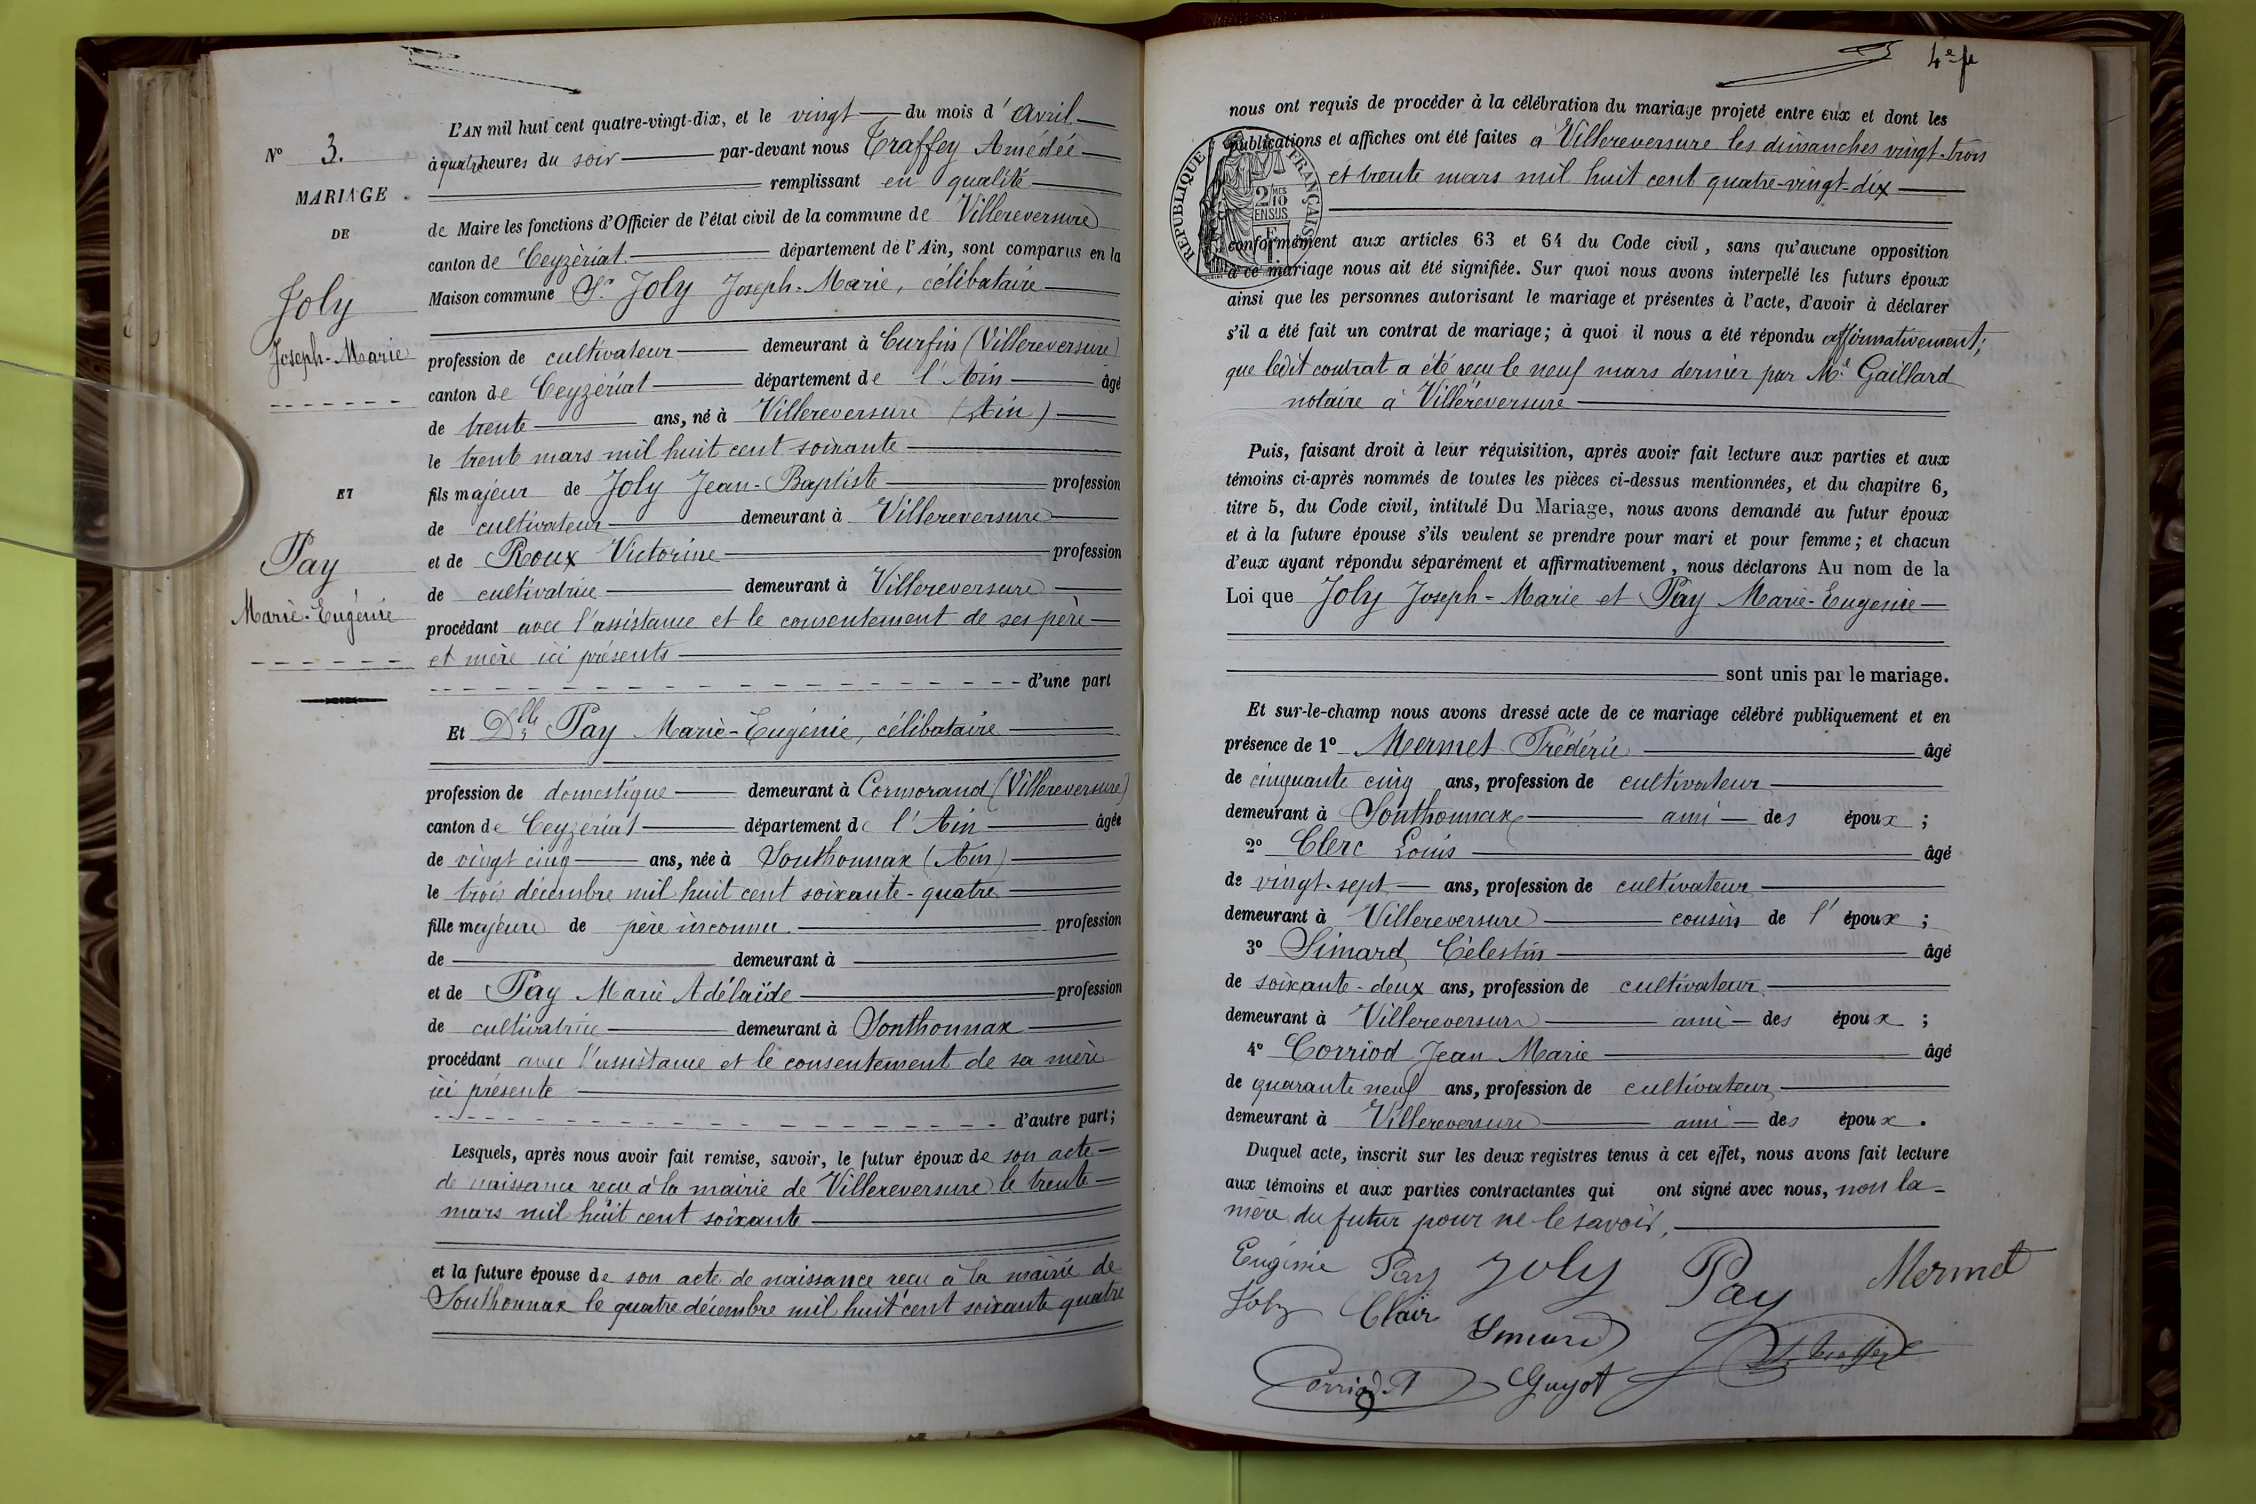 L'AN mil huit cent quatre-vingt-dix, et le vingt du mois d'Avril
N° 3.
à quatre heures du soir par-devant nous Traffey Amédée
MARIAGE
remplissant en qualité
DE
de Maire les fonctions d'Officier de l'état civil de la commune de Villereversure
canton de Ceyzériat département de l'Ain, sont comparus en la
Maison commune Sr Joly Joseph-Marie, célibataire
Joly
Joseph-Marie
profession de cultivateur demeurant à Curfin (Villereversure)
canton de Ceyzériat département de l'Ain âgé
de trente ans, né à Villereversure (Ain)
le trente mars mil huit cent soixante
ET
fils majeur de Joly Jean-Baptiste profession
de cultivateur demeurant à Villereversure
et de Roux Victorine profession
Pay
Marie-Eugénie
de cultivatrice demeurant à Villereversure
procédant avec l'assistance et le consentement de ses père
et mère ici présents
d'une part
Et Dlle Pay Marie-Eugénie, célibataire
profession de domestique demeurant à Cormorand (Villereversure)
canton de Ceyzériat département de l'Ain âgée
de vingt cinq ans, née à Sonthonnax (Ain)
le trois décembre mil huit cent soixante-quatre
fille majeure de père inconnu profession
de demeurant à
et de Pay Marie Adélaïde profession
de cultivatrice demeurant à Sonthonnax
procédant avec l'assistance et le consentement de sa mère
ici présente
d'autre part;
Lesquels, après nous avoir fait remise, savoir, le futur époux de son acte
de naissance reçu à la mairie de Villereversure le trente
mars mil huit cent soixante
et la future épouse de son acte de naissance reçu à la mairie de
Sonthonnax le quatre décembre mil huit cent soixante quatre
4e f
nous ont requis de procéder à la célébration du mariage projeté entre eux et dont les
publications et affiches ont été faites à Villereversure les dimanches vingt-trois
et trente mars mil huit cent quatre-vingt-dix
RÉPUBLIQUE FRANÇAISE
2/10 MES
EN SUS
1 F
conformément aux articles 63 et 64 du Code civil, sans qu'aucune opposition
à ce mariage nous ait été signifiée. Sur quoi nous avons interpellé les futurs époux
ainsi que les personnes autorisant le mariage et présentes à l'acte, d'avoir à déclarer
s'il a été fait un contrat de mariage; à quoi il nous a été répondu affirmativement;
que ledit contrat a été reçu le neuf mars dernier par Me Gaillard
notaire à Villereversure
Puis, faisant droit à leur réquisition, après avoir fait lecture aux parties et aux
témoins ci-après nommés de toutes les pièces ci-dessus mentionnées, et du chapitre 6,
titre 5, du Code civil, intitulé Du Mariage, nous avons demandé au futur époux
et à la future épouse s'ils veulent se prendre pour mari et pour femme; et chacun
d'eux ayant répondu séparément et affirmativement, nous déclarons Au nom de la
Loi que Joly Joseph-Marie et Pay Marie-Eugénie
sont unis par le mariage.
Et sur-le-champ nous avons dressé acte de ce mariage célébré publiquement et en
présence de 1° Mermet Frédéric âgé
de cinquante cinq ans, profession de cultivateur
demeurant à Sonthonnax ami des époux;
2° Clerc Louis âgé
de vingt-sept ans, profession de cultivateur
demeurant à Villereversure cousin de l'époux;
3° Simard Célestin âgé
de soixante-deux ans, profession de cultivateur
demeurant à Villereversure ami des époux;
4° Corriod Jean Marie âgé
de quarante neuf ans, profession de cultivateur
demeurant à Villereversure ami des époux.
Duquel acte, inscrit sur les deux registres tenus à cet effet, nous avons fait lecture
aux témoins et aux parties contractantes qui ont signé avec nous, non la
mère du futur pour ne le savoir.
Eugénie Pay Joly Pay Mermet
Joly Clair Simard
Corriod Guyot A Traffey